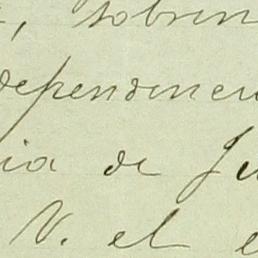 , sobrin
dependencu
ia de Ju
V. el e